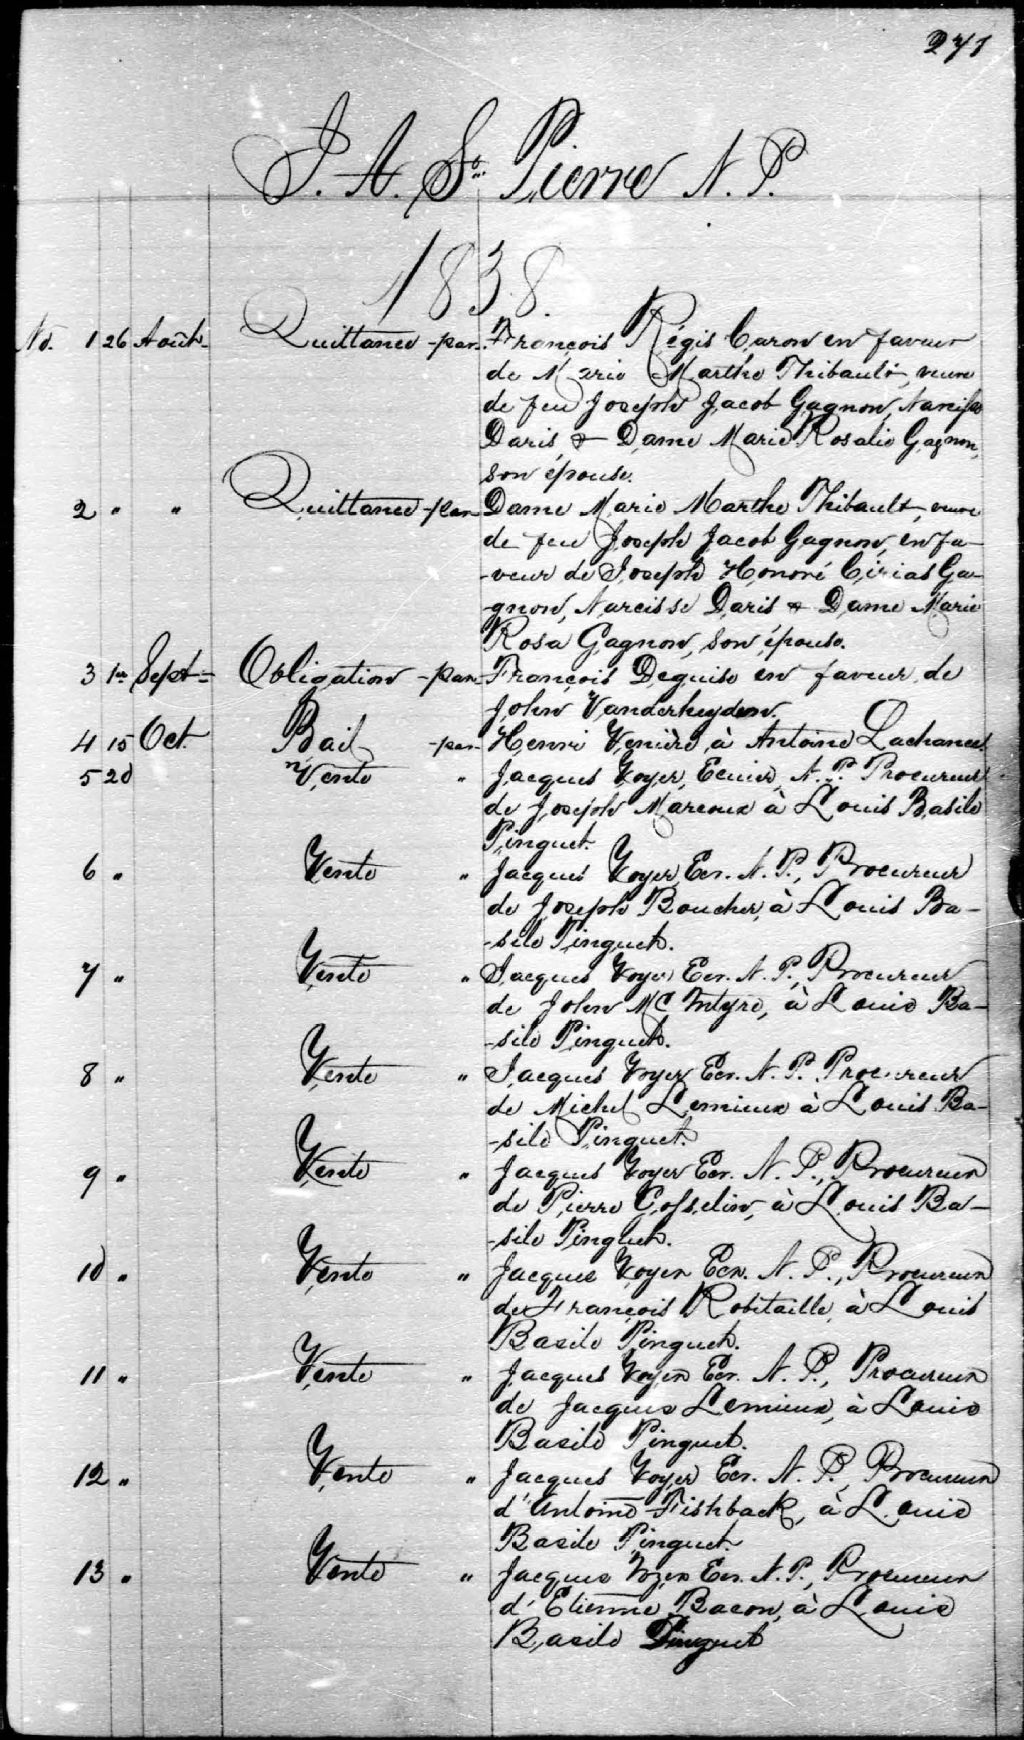 271
J. A. St. Pierre N. P.
1838.
No. 1 26 Août Quittance par François Régis Caron en faveur
de Marie Marthe Thibault, veuve
de feu Joseph Jacob Gagnon, Narcisse
Daris & Dame Marie Rosalie Gagnon,
son épouse.
2 " " Quittance par Dame Marie Marthe Thibault, veuve
de feu Joseph Jacob Gagnon, en fa-
-veur de Joseph Honoré Cirias Ga-
-gnon, Narcisse Daris & Dame Marie
Rosa Gagnon, son épouse.
3 1er Sept. Obligation par François Deguise en faveur de
John Vanderheyden.
4 15 Oct. Bail par Henri Venière, à Antoine Lachance.
5 20 " Vente " Jacques Voyer, Ecuier, N. P. Procureur
de Joseph Marcoux à Louis Basile
Pinguet.
6 " Vente " Jacques Voyer, Ecr. N. P., Procureur
de Joseph Boucher, à Louis Ba-
-sile Pinguet.
7 " Vente " Jacques Voyer Ecr. N. P., Procureur
de John McIntyre, à Louis Ba-
-sile Pinguet.
8 " Vente " Jacques Voyer Ecr. N. P. Procureur
de Michel Lemieux à Louis Ba-
-sile Pinguet.
9 " Vente " Jacques Voyer Ecr. N. P., Procureur
de Pierre Gosselin, à Louis Ba-
-sile Pinguet.
10 " Vente " Jacques Voyer Ecr. N. P., Procureur
de François Robitaille, à Louis
Basile Pinguet.
11 " Vente " Jacques Voyer Ecr. N. P., Procureur
de Jacques Lemieux, à Louis
Basile Pinguet.
12 " Vente " Jacques Voyer Ecr. N. P. Procureur
d'Antoine Fishback, à Louis
Basile Pinguet.
13 " Vente " Jacques Voyer Ecr. N. P., Procureur
d'Etienne Bacon, à Louis
Basile Pinguet